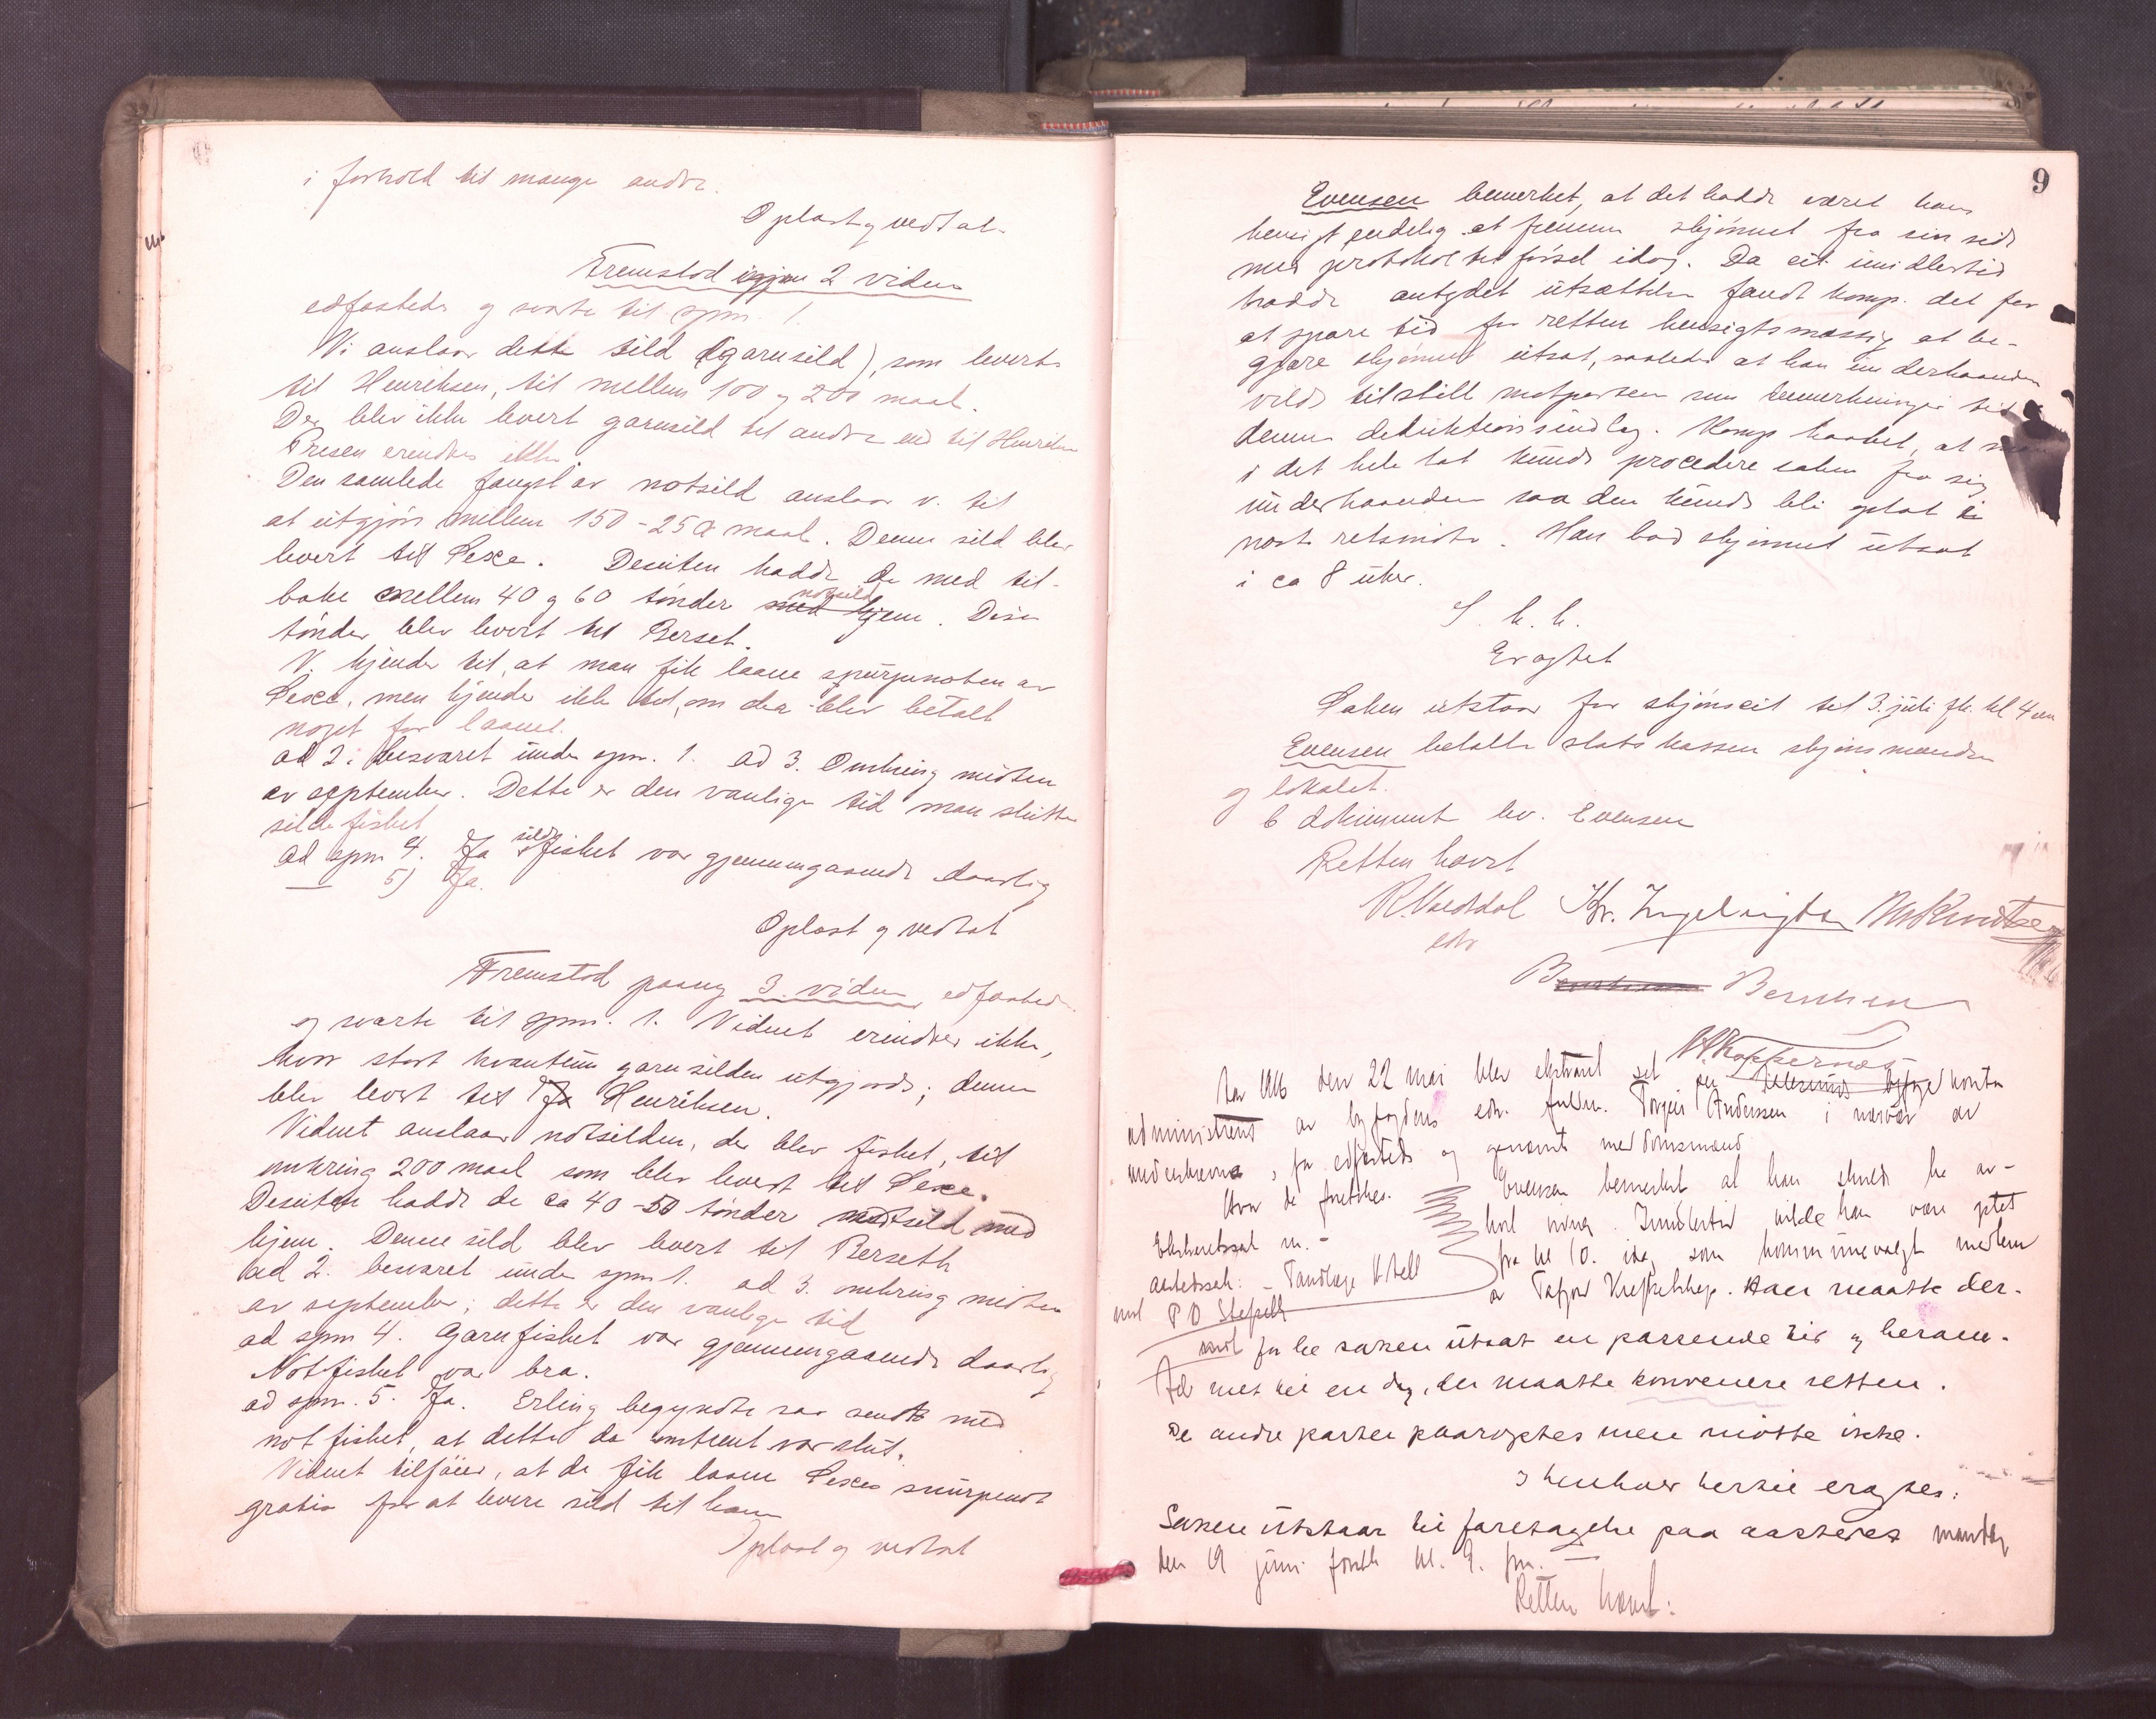 i forhold til mange andre.
Oplæst og vedtat.
Fremstod igjen 2 vidne
edfæstedes og svarte til spm. 1.
Vi anslaar dette sild (garnsild), som levertes
til Henriksen, til mellem 100 og 200 maal.
Der blev ikke levert garnsild til andre end til Henriksen
Prisen erindres ikke.
Den samlede fangst av notsild anslaar v. til
at utgjøre mellem 150-250 maal. Denne sild blev
levert til Sexe. Desuten hadde de med til-
bake mellem 40 og 60 tønder med notsild hjem. Disse
tønder blev levert til Berset.
V. kjender til at man fik laane snurpenoten av
Sexe, men kjender ikke til, om der blev betalt
noget for laanet.
ad 2: besvaret under spm. 1. ad 3. Omkring midten
av september. Dette er den vanlige tid man slutter
silde fisket
ad spm 4. Ja sildefisket var gjennemgaaende daarlig
— 5) Ja.
Oplæst og vedtat
Fremstod paany 3. vidne, edfæstedes
og svarte til spm. 1. Vidnet erindrer ikke,
hvor stort kvantum garnsilden utgjorde; denne
blev levert til Henriksen.
Vidnet anslaar notsilden, der blev fisket, til
omkring 200 maal som blev levert til Sexe.
Desuten hadde de ca 40-50 tønder notsild med
hjem. Denne sild blev levert til Berseth
ad 2. besvaret under spm 1. ad 3. omkring midten
av september; dette er den vanlige tid
ad spm 4. Garnfisket var gjennemgaaende daarlig
Notfisket var bra.
ad spm. 5. Ja. Erling begyndte saa sendt med
notfisket, at dette da omtrent var slut.
Vidnet tilføier, at de fik laane Sexes snurpenot
gratis for at levere sild til ham
Oplæst og vedtat
9
Evensen bemerket, at det hadde været hans
hensigt endelig at fremme skjønnet fra sin side
med protokoltilførsel idag. Da eit imidlertid
hadde antydet utsættelse fandt komp. det for
at spare tid for retten hensigtsmæssig at be-
gjære skjønnet utsat, saaledes at han underhaanden
vilde tilstille motparten sine bemerkninger til
denne deduktionsindlæg. Komp haabet, at man
i det hele tat kunde procedere saken fra sig
underhaanden saa den kunde bli optat i
næste retsmøte. Han bad skjønnet utsat
i ca 8 uker.
Eragtet
Saken utstaar for skjønseit til 3. juli fk. kl 4 em
Evensen betalte statskassen skjønsmændene
og lokalet.
6 dokument lev. Evensen
Retten hævet
Kr. Ingebrigtsen
edv
Berntsen
Aar 1916 den 22 mai blev ekstraret sat paa Aalesunds byfogd kontor
administrert av byfogdens edv. fuldm. Torgeir Anderssen i nærvær av
undertegnede, før edfæstede og opnævnte meddomsmænd
Hvor da foretokes: Evensen bemerket at han skulde ha av-
Ekstraretssak nr. -
fra kl 10. idag som kommunevalgt medlem
aastedssak: - Tandlæge Kjell
av Tafjord Kraftselskap. Han maatte der-
mot P O Stafseth
for be saken utsat en passende tid og beram-
met til en dag, der maatte konvenere retten.
De andre parter paaroptes men møtte ikke.
I henhold hertil eragtes:
Saken utstaar til foretagelse paa aastedet mandag
den 19 juni førstk. kl. 9. fm. —
Retten hævet: